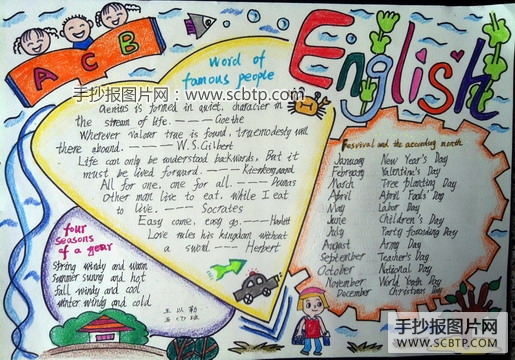 A C B
English
手抄报图片网：www.scbtp.com
Word of
famous people
Genius is formed in quiet, character in
the stream of life. ———— Goethe
Wherever valour true is found, true modesty will
there abound. ———— W.S.Gilbert
Life can only be understood backwards, But it
must be lived forward. ————
All for one, one for all. ———— Dumas
Other man live to eat, while I eat
to live. ———— Socrates
Easy come, easy go. ————
Love rules his kingdom without
a sword ———— Herbert
Festival and the according month
January New Year's Day
February Valentine's Day
March Tree planting Day
April April Fools' Day
May Labor Day
June Children's Day
July Party founding Day
August Army Day
September Teacher's Day
October National Day
November World Youth Day
December Christmas Day
four
seasons
of a year
String windy and warm
summer sunny and hot
fall windy and cool
winter windy and cold
手抄报图片网
WWW.SCBTP.COM